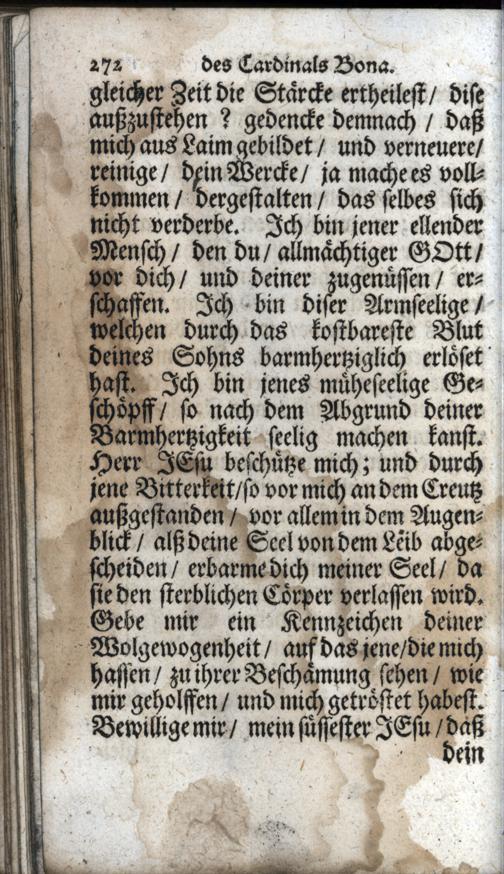 272 des Cardinals Bona.
gleicher Zeit die Stärcke ertheilest/ dise
außzustehen ? gedencke demnach / daß
mich aus Laim gebildet / und verneuere/
reinige / dein Wercke / ja mache es voll-
kommen / dergestalten / das selbes sich
nicht verderbe. Ich bin jener ellender
Mensch / den du / allmächtiger GOtt/
vor dich / und deiner zugenüssen / er-
schaffen. Ich bin diser Armseelige /
welchen durch das kostbareste Blut
deines Sohns barmhertziglich erlöset
hast. Ich bin jenes müheseelige Ge-
schöpff / so nach dem Abgrund deiner
Barmhertzigkeit seelig machen kanst.
Herr JEsu beschütze mich ; und durch
jene Bitterkeit/so vor mich an dem Creutz
außgestanden / vor allem in dem Augen-
blick / alß deine Seel von dem Leib abge-
scheiden / erbarme dich meiner Seel / da
sie den sterblichen Cörper verlassen wird.
Gebe mir ein Kennzeichen deiner
Wolgewogenheit / auf das jene/die mich
hassen / zu ihrer Beschämung sehen / wie
mir geholffen / und mich getröstet habest.
Bewillige mir / mein süssester JEsu / daß
dein